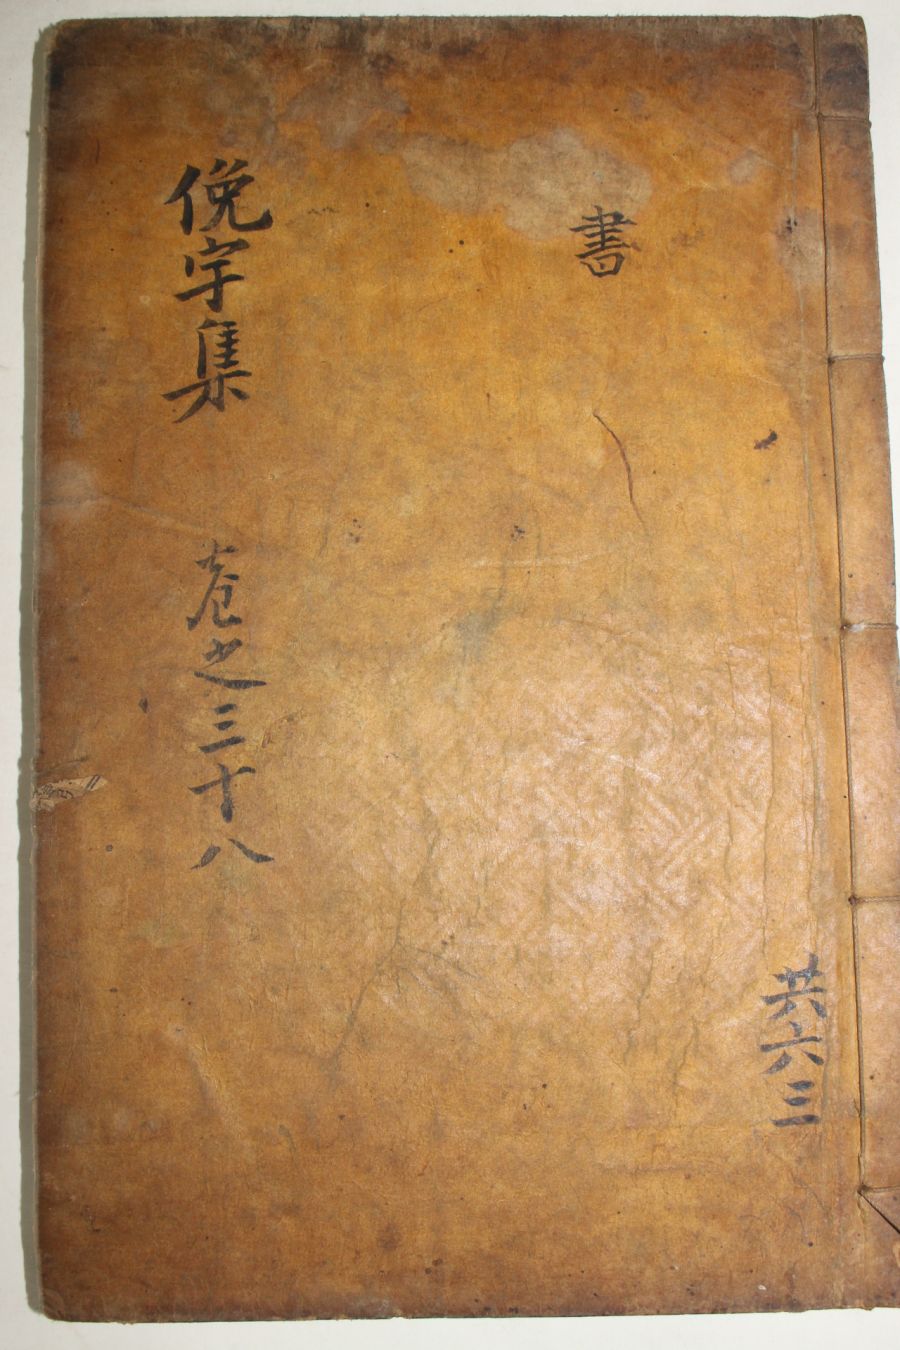 俛宇集 卷之三十八
書
共六三